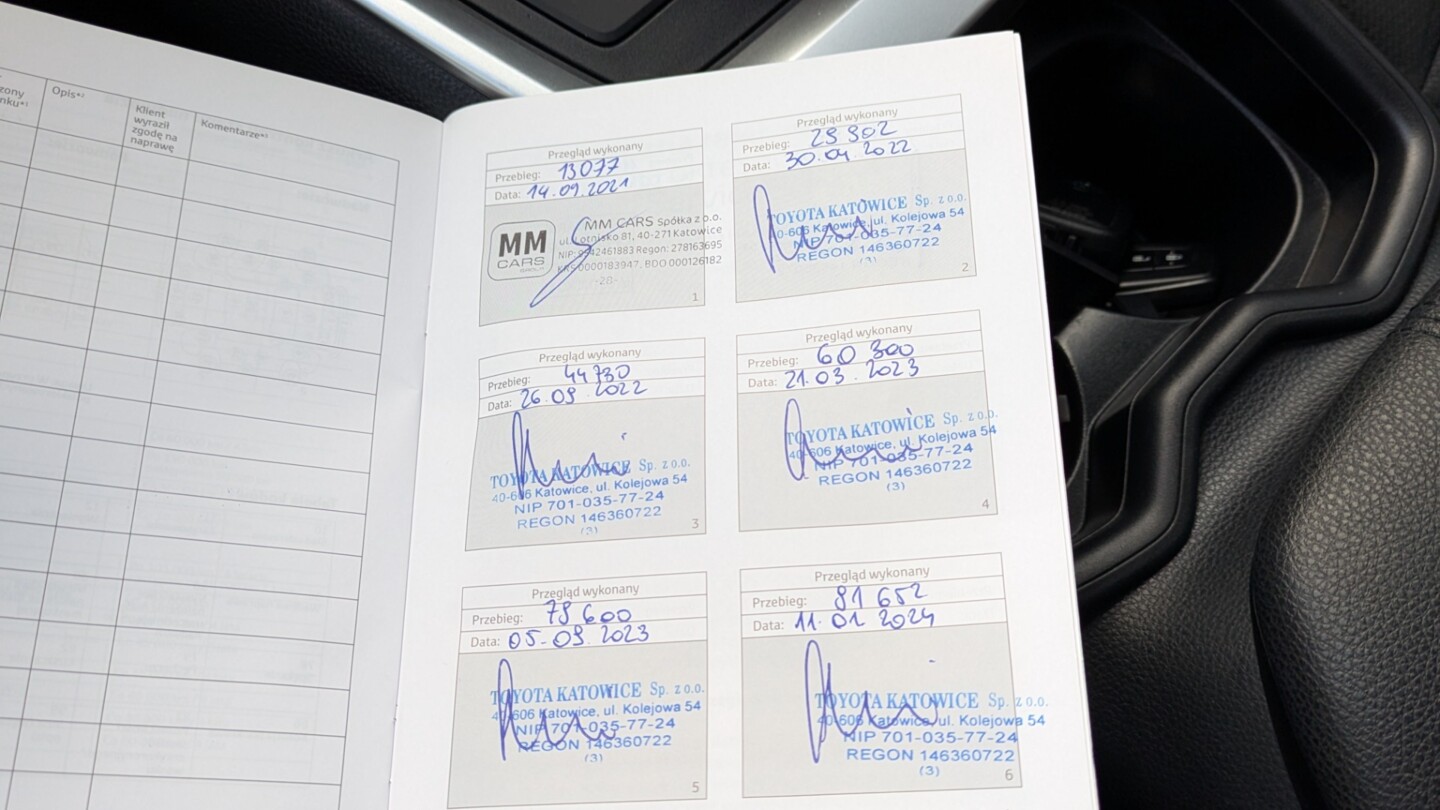 zony
nku*¹
Opis*²
Klient
wyraził
zgodę na
naprawę
Komentarze*³
Przegląd wykonany
Przebieg: 13077
Data: 14.09.2021
MM
CARS
MM CARS Spółka z o.o.
ul. Lotnisko 81, 40-271 Katowice
NIP: 9542461883 Regon: 278163695
KRS 0000183947, BDO 000126182
-28-
1
Przegląd wykonany
Przebieg: 29 902
Data: 30.04.2022
TOYOTA KATOWICE Sp. z o.o.
40-606 Katowice, ul. Kolejowa 54
NIP 701-035-77-24
REGON 146360722
(3)
2
Przegląd wykonany
Przebieg: 44 730
Data: 26.09.2022
TOYOTA KATOWICE Sp. z o.o.
40-606 Katowice, ul. Kolejowa 54
NIP 701-035-77-24
REGON 146360722
(3)
3
Przegląd wykonany
Przebieg: 60 300
Data: 21.03.2023
TOYOTA KATOWICE Sp. z o.o.
40-606 Katowice, ul. Kolejowa 54
NIP 701-035-77-24
REGON 146360722
(3)
4
Przegląd wykonany
Przebieg: 79 600
Data: 05.09.2023
TOYOTA KATOWICE Sp. z o.o.
40-606 Katowice, ul. Kolejowa 54
NIP 701-035-77-24
REGON 146360722
(3)
5
Przegląd wykonany
Przebieg: 81 652
Data: 11.01.2024
TOYOTA KATOWICE Sp. z o.o.
40-606 Katowice, ul. Kolejowa 54
NIP 701-035-77-24
REGON 146360722
(3)
6